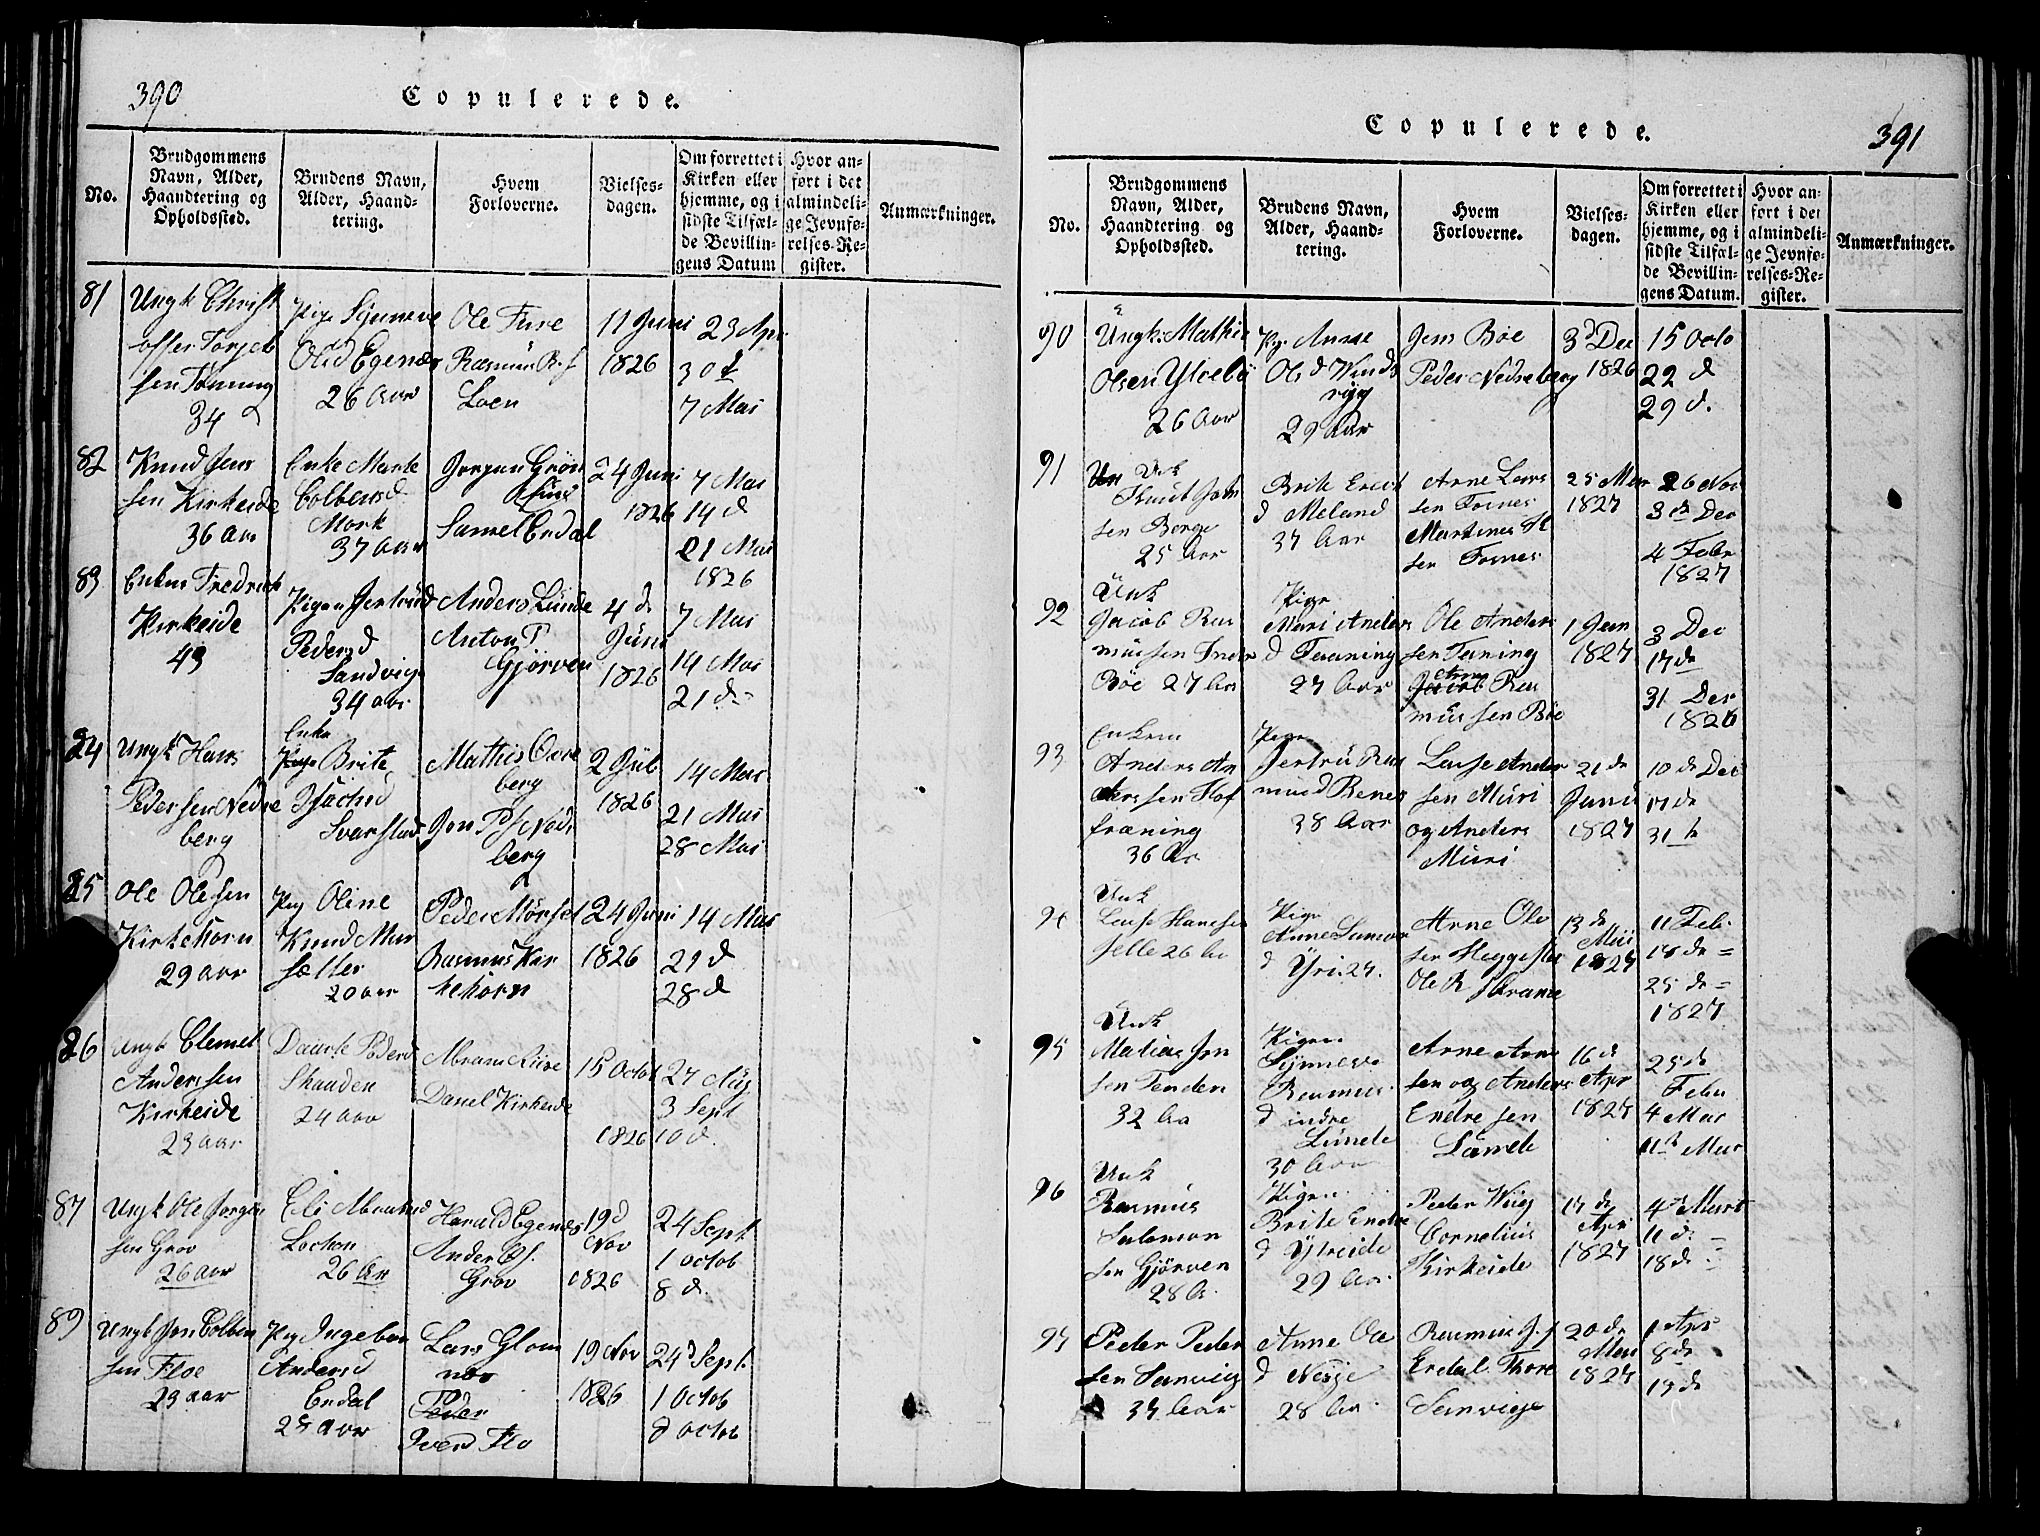 390
Copulerede.
No.
Brudgommens Navn, Alder, Haandtering og Opholdssted.
Brudens Navn, Alder, Haandtering.
Hvem Forloverne.
Vielsesdagen.
Om forrettet i Kirken eller hjemme, og i sidste Tilfælde Bevillingens Datum
Hvor anført i det almindelige Jevnførelses-Register.
Anmærkninger.
81
Ungk Christ
offer Torjeb
sen Tonning
34
Pige Synneve
Ols d Egenæs
26 Aar
Ole Fure
Rasmus R. s
Loen
11 Juni
1826
23 Apr
30 d
7 Mai
82
Knud Jens
sen Kirkeide
36 Aar
Enke Marte
Colbens d
Mork
37 Aar
Jørgen Grov
Samel Erdal
24 Juni
1826
7 Mai
14 d
21 Mai
1826
83
Enkm Fredrick
Kirkeide
43
Pigen Jertrud
Peders d
Sandvig
34 aar
Anders Lunde
Anton P
Gjørven
4 d
Juni
1826
7 Mai
14 Mai
21 d
84
Ungk Hans
Pedersen Nedre
berg
Enke
Brite
Isachs d
Svarstad
Mathis Øvre
berg
Jon P s Nedr
berg
2 Jul
1826
14 Mai
21 Mai
28 Mai
85
Ole Olesen
Kirkehorn
29 aar
Pig Oline
Knud Mur
sætter
20 aar
Peder Mørset
Rasmus Kir
kehorn
24 Juni
1826
14 Mai
21 d
28 d
86
Ungk Clemet
Anderssen
Kirkeide
23 aar
Daarte Peders
Skaaden
24 aar
Abram Riise
Danel Kirkeide
15 Octob
1826
27 Aug
3 Sept
10 d.
87
Ungk Ole Jørgen
sen Grov
26 aar
Eli Abrams d
Lochen
26 Aar
Harald Egenæs
Ander Ol s.
Grov
19 d
Nov
1826
24 Sept
1 octob
8 d.
89
Ungk Jon Colben
sen Floe
23 aar
Pig Ingebor
Anders d
Erdal
28 aar
Lars Glom
næs
Peder
Ivers Flo
19 Nov
1826
24 d Sept
1 Octob
8 octob
Copulerede.
391
No.
Brudgommens Navn, Alder, Haandtering og Opholdssted.
Brudens Navn, Alder, Haandtering.
Hvem Forloverne.
Vielsesdagen.
Om forrettet i Kirken eller hjemme, og i sidste Tilfælde Bevillingens Datum.
Hvor anført i det almindelige Jevnførelses-Register.
Anmærkninger.
90
Ungk: Mathis
Olsen Ytrebø
26 Aar
Pg. Anne
Ols d Vinds
ryg
29 Aar
Jens Bøe
Peder Nedreberg
3 d Dec
1826
15 Octo
22 d
29 d.
91
Unk
Knut Joh
sen Berge
25 Aar
Brite Erick
d Meland
37 Aar
Arne Lars
sen Fornes
Martines
sen Fornes
25 Mar
1827
26 Nov
3 d Dec
4 Febr
1827
92
Unk
Jacob Ras
mus sen Inder
Bøe 27 Aar
Pige
Mari Anders
d Taaning
27 Aar
Ole Anders
sen Taning
Arne
Ras
mus sen Bøe
1 Jan
1827
3 Dec
17 de
31 Dec
1826
93
Enkem
Anders An
ders sen Hof
træning
36 Aar
Pige
Jertru Ras
mus d Renes
38 Aar
Lasse Ander
sen Muri
og Anders
Muri
21 de
Juni
1827
10 de Dec
17 de
31
94
Unk
Lasse Hansen
Selle 26 Aar
Pige
Anne
d Yri 27.
Arne Ole
sen Heggestad
Ole R
13 de
Mai
1827
11 Feb.
18 de
25 de
1827
95
Unk
Matias Jon
sen Tenden
32 Aar
Pigen
Synneve
Rasmus
d indre
Lunde
30 Aar
Arne Arne
sen og Anders
Endre sen
Lunde
16 d
Apr
1827
25 de
Febr
4 Mar
11 d Mar
96
Unk
Rasmus
Salomon
sen Gjørven
28 A.
Pigen
Brite Endre
d Ytreide
29 Aar
Peder Wiig
Cornelius
Kirkeide
17 de
Apr
1827
4 d Mart
11 de
18 de
97
Peder Peder
sen Sanvig
37 Aar
Anne Ole
d Nesje
28 Aar
Rasmus J. s
Erdal Thore
Sanvige
20 de
Mai
1827
1 Apr
8 de
17 de